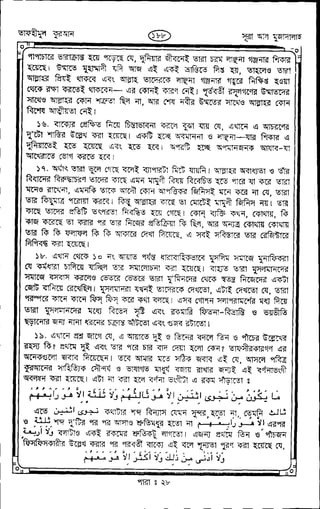 তাফহীমুল কুরআন
১৮৮
সূরা আল মুজাদালাহ
পাপাচারে ভারাক্রান্ত হয়ে পড়েছে যে, দুনিয়ার জীবনেই তারা চরম লাঞ্ছনা গঞ্জনার শিকার
হয়েছে। উম্মতে মুহাম্মাদী যদি আজ এই একই ভ্রান্তিতে লিপ্ত হয়, তাহলেও তারা
আল্লাহর প্রিয়ই থাকবে এবং আল্লাহ তাদেরকে লাঞ্ছনা গঞ্জনার গহ্বরে নিক্ষিপ্ত হওয়া
থেকে রক্ষা করতেই থাকবেন— এর কোনই কারণ নেই। পূর্ববর্তী রসূলগণের উম্মতদের
সাথেও আল্লাহর কোন শত্রুতা ছিল না, আর শেষ নবীর উম্মতের সাথেও আল্লাহর কোন
বিশেষ আত্মীয়তা নেই।
১৬. বাক্যের প্রেক্ষিত নিয়ে চিন্তাভাবনা করলে বুঝা যায় যে, এখানে এ আচরণের
দু'টো শাস্তির উল্লেখ করা হয়েছে। একটি হচ্ছে অবমাননা ও লাঞ্ছনা—যার শিকার এ
দুনিয়াতেই হতে হয়েছে এবং হতে হবে। অপরটি হচ্ছে অপমানজনক আযাব—যা
আখেরাতে ভোগ করতে হবে।
১৭. অর্থাৎ তারা ভুলে গেছে বলেই ব্যাপারটা মিটে যায়নি। আল্লাহর অবাধ্যতা ও তাঁর
বিধানের বিরুদ্ধাচরণ তাদের কাছে এমন মামুলী বিষয় বিবেচিত হতে পারে যা করে তারা
মনেও রাখেনা, এমনকি তাকে আদৌ কোন আপত্তিকর জিনিসই মনে করে না যে, তারা
তার কিছুমাত্র পরোয়া করবে। কিন্তু আল্লাহর কাছে তা মোটেই মামুলী জিনিস নয়। তাঁর
কাছে তাদের প্রতিটি তৎপরতা নিবন্ধিত হয়ে গেছে। কোন্ ব্যক্তি কখন, কোথায়, কি
কাজ করেছে তা করার পর তার নিজের প্রতিক্রিয়া কি ছিল, আর অন্যত্র কোথায় কোথায়
তার কি কি ফলাফল কি কি আকারে দেখা দিয়েছে, এ সবই সবিস্তারে তাঁর রেজিস্টারে
লিপিবদ্ধ করা হয়েছে।
১৮. এখান থেকে ১০ নং আয়াত পর্যন্ত ধারাবাহিকভাবে মুসলিম সমাজে মুনাফিকরা
যে কর্মধারা চালিয়ে যাচ্ছিল তার সমালোচনা করা হয়েছে। বাহ্যত তারা মুসলমানদের
সমাজে বসবাস করলেও ভেতরে ভেতরে তারা মু'মিনদের থেকে স্বতন্ত্র নিজেদের একটা
জোট বানিয়ে রেখেছিল। মুসলমানরা যখনই তাদেরকে দেখতো, এটাই দেখতো যে, তারা
পরস্পরে কানে কানে ফিস্ ফিস্ করে কথা বলছে। এসব গোপন সলাপরামর্শের মধ্য দিয়ে
তারা মুসলমানদের মধ্যে বিভেদ সৃষ্টি এবং রকমারি ফিতনা—বিভ্রান্তি ও ভয়ভীতি
ছড়ানোর জন্য নানা ধরনের চক্রান্ত আঁটতো এবং গুজব রটাতো।
১৯. এখানে প্রশ্ন জাগে যে, এ আয়াতে দুই ও তিনের বদলে তিন ও পাঁচের উল্লেখের
রহস্য কি? প্রথমে দুই এবং তার পরে চার বাদ দেয়া হলো কেন? তাফসীরকারগণ এর
অনেকগুলো জবাব দিয়েছেন। তবে আমার মতে সঠিক জবাব এই যে, আসলে পবিত্র
কুরআনের সাহিত্যিক সৌন্দর্য ও ভাষাগত মাধুর্য বজায় রাখার জন্যই এই বর্ণনাভংগী
অবলম্বন করা হয়েছে। এটা না করা হলে বর্ণনা ভংগীটা এ রকম দাঁড়াতো :
مَا يَكُونُ مِنْ نَّجْوٰى اثْنَيْنِ اِلَّا هُوَ ثَالِثُهُمْ وَلَا ثَلٰثَةٍ اِلَّا هُوَ رَابِعُهُمْ
এতে نَجْوٰى اثْنَيْنِ কথাটার শব্দ বিন্যাস যেমন সুন্দর হতো না, তেমনি ثالث
ও ثلثة শব্দ দু'টির পর পর আসাও শ্রুতিমধুর হতো না اِلَّا هُوَ رَابِعُهُمْ এরপর
وَلَا اَرْبَعَةٍ বলাটাও একই রকমের শ্রুতিকটু লাগতো। এজন্য প্রথমে তিন ও পাঁচজন
ফিসফিসকারীর উল্লেখ করার পর পরবর্তী বাক্যে এই বলে শূন্যতা পূরণ করা হয়েছে যে,
وَلَا اَدْنٰى مِنْ ذٰلِكَ وَلَا اَكْثَرَ اِلَّا هُوَ مَعَهُمْ
পারা : ২৮